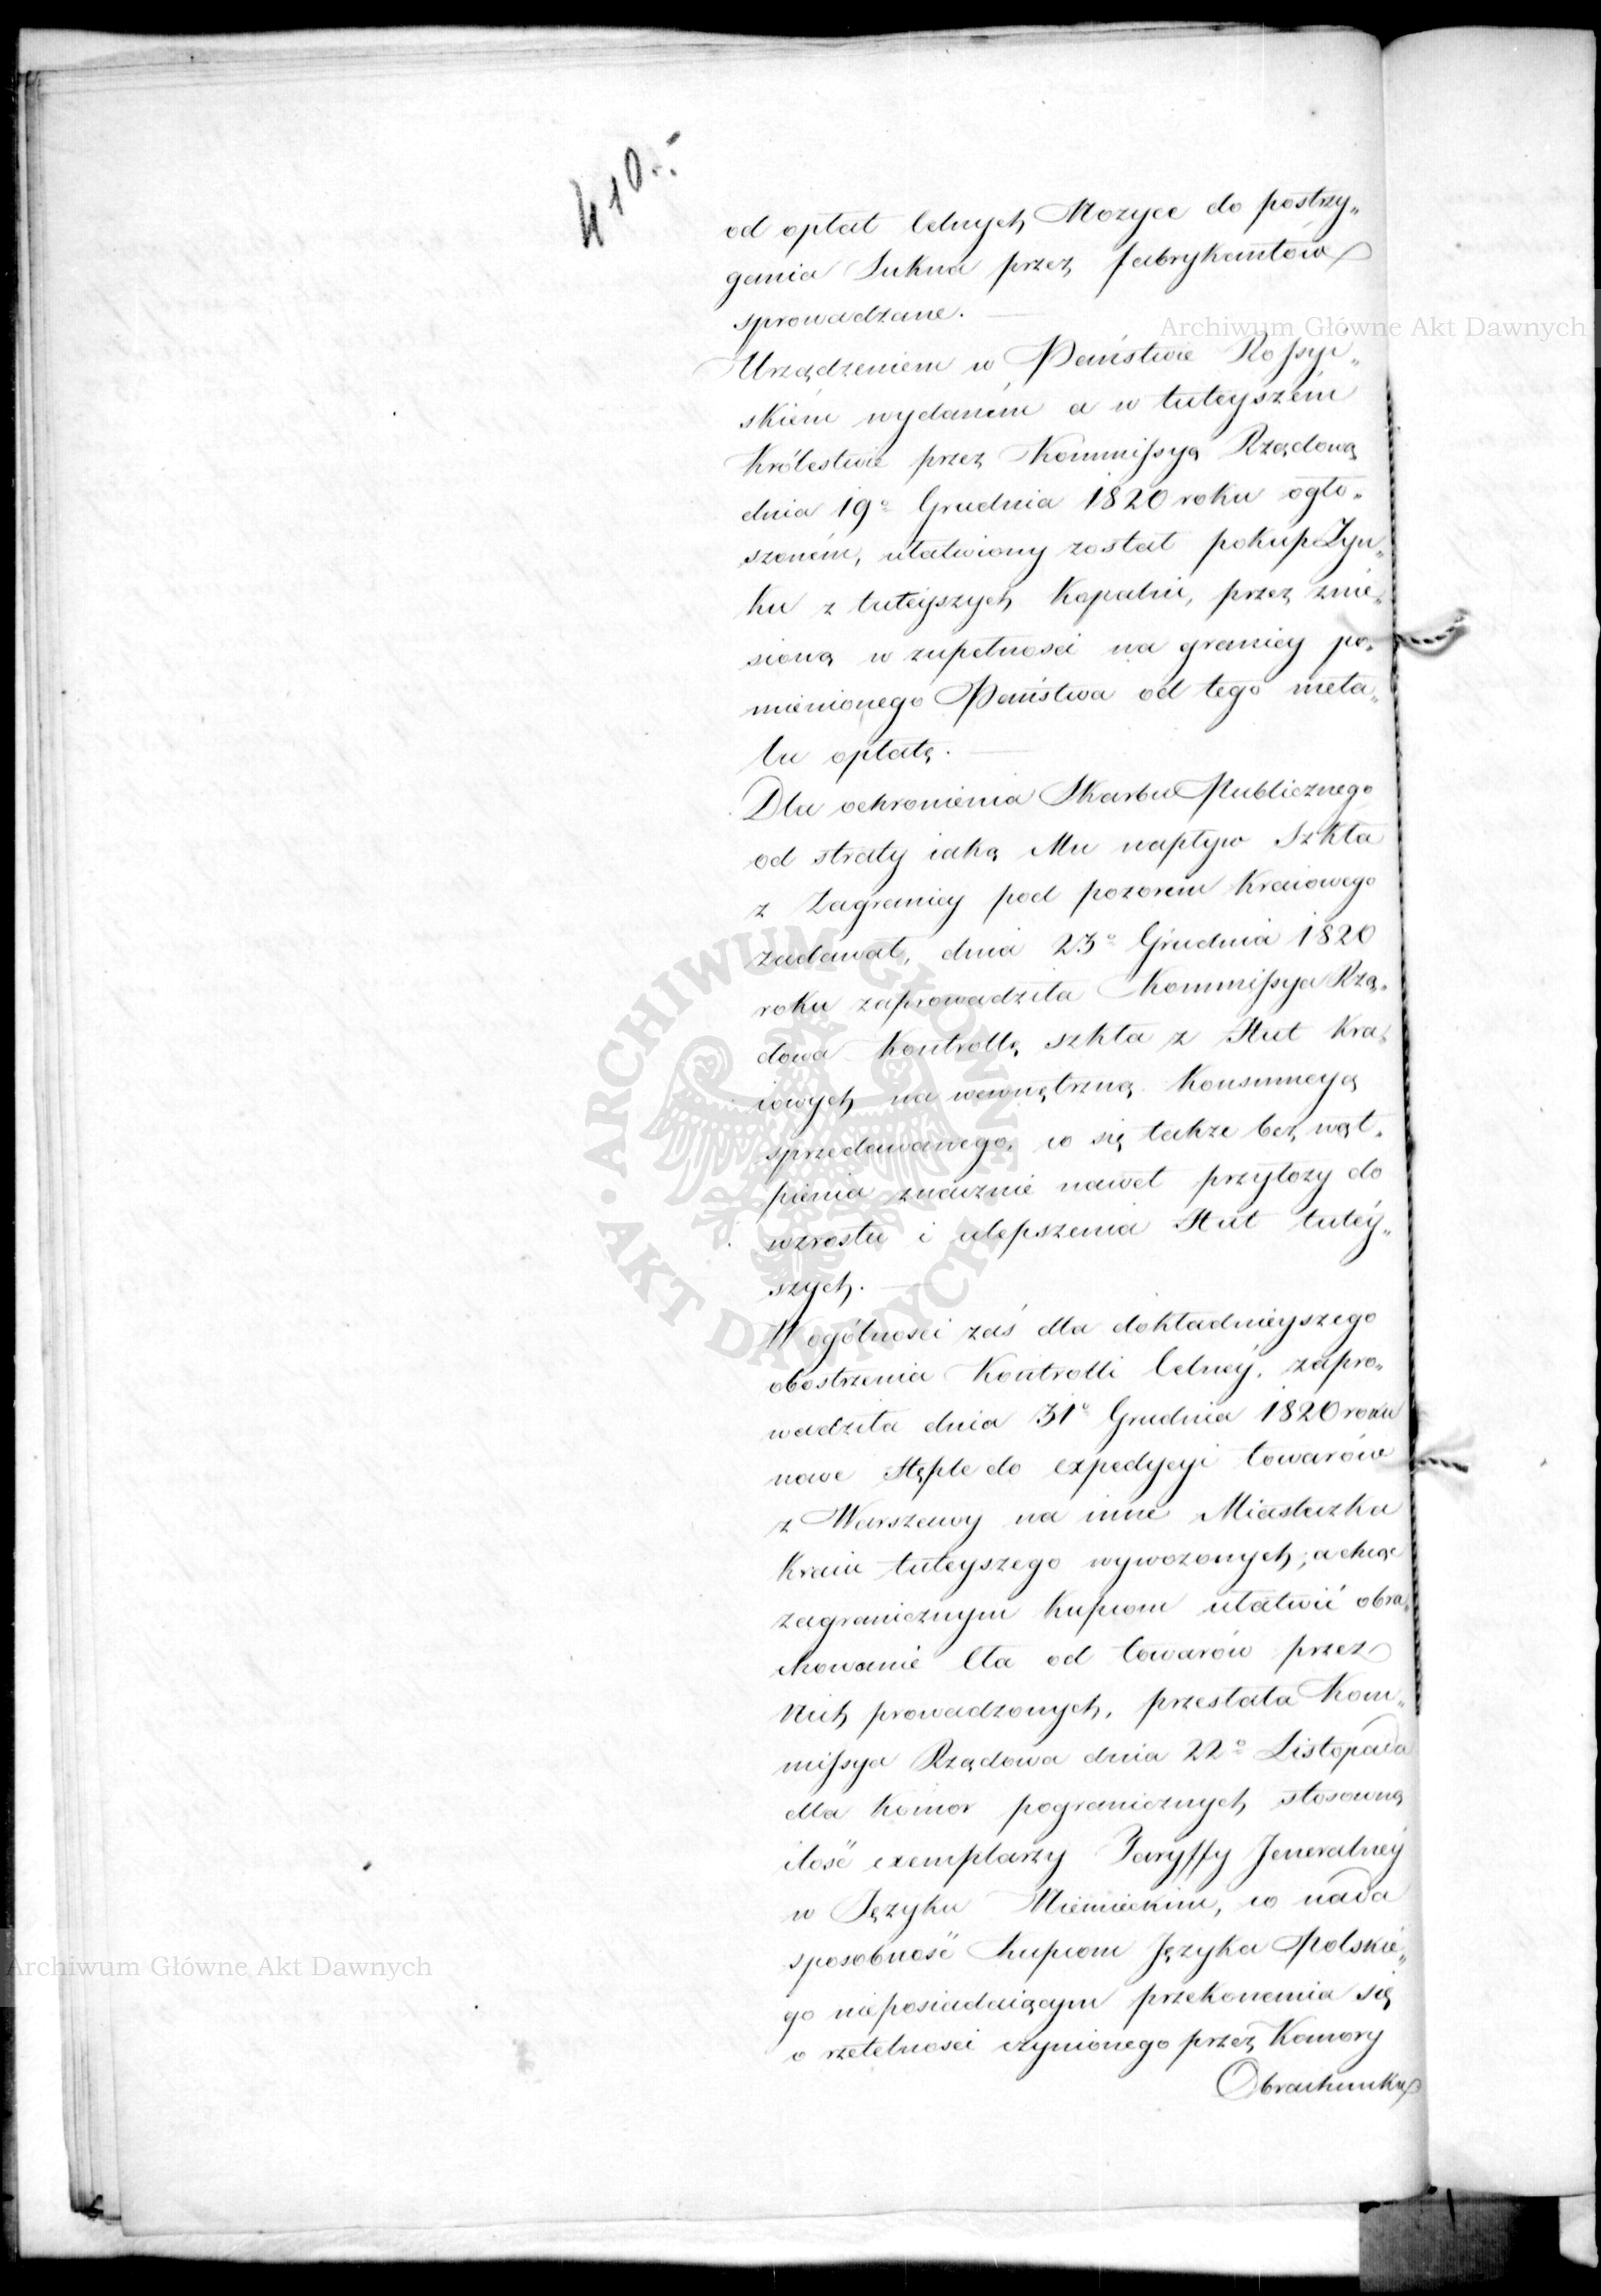 410.
od opłat Celnych Nożyce do postrzy„
gania Sukna przez fabrykantów
sprowadzane. —
Urządzeniem w Państwie Rossyi„
skiém wydaném a w tuteyszém
Królestwie przez Kommissyą Rządową
dnia 19º Grudnia 1820 roku ogło„
szoném, ułatwiony został pokup Zyn„
ku z tuteyszych Kopalni, przez znie„
sioną w zupełności na granicy po„
mienionego Państwa od tego meta„
lu opłatę. —
Dla ochronienia Skarbu Publicznego
od straty iaką Mu napływ Szkła
z Zagranicy pod pozorem Kraiowego
zadawał, dnia 23º Grudnia 1820
roku zaprowadziła Kommissya Rzą„
dowa Kontrollę szkła z Hut Kra„
iowych na wewnętrzną Konsumcyą
sprzedawanego, co się także bez wąt„
pienia znacznie nawet przyłoży do
wzrostu i ulepszenia Hut tutéy„
szych. —
W ogólności zaś dla dokładnieyszego
obostrzenia Kontrolli Celnéy, zapro„
wadziła dnia 31º Grudnia 1820 roku
nowe Stęple do expedycyi towarów
z Warszawy na inne Miasteczka
Kraiu tuteyszego wywożonych; a chcąc
zagranicznym Kupcom ułatwić obra„
chowanie Cła od towarów przez
Nich prowadzonych, przesłała Kom„
missya Rządowa dnia 22º Listopada
dla Komor pogranicznych stosowną
ilość exemplarzy Taryffy Jeneralnéy
w Języku Niemieckim, co nada
sposobność Kupcom Języka Polskie„
go nieposiadaiącym przekonania się
o rzetelności czynionego przez Komory
Obrachunku
Archiwum Główne Akt Dawnych
Archiwum Główne Akt Dawnych
ARCHIWUM GŁÓWNE • AKT DAWNYCH •